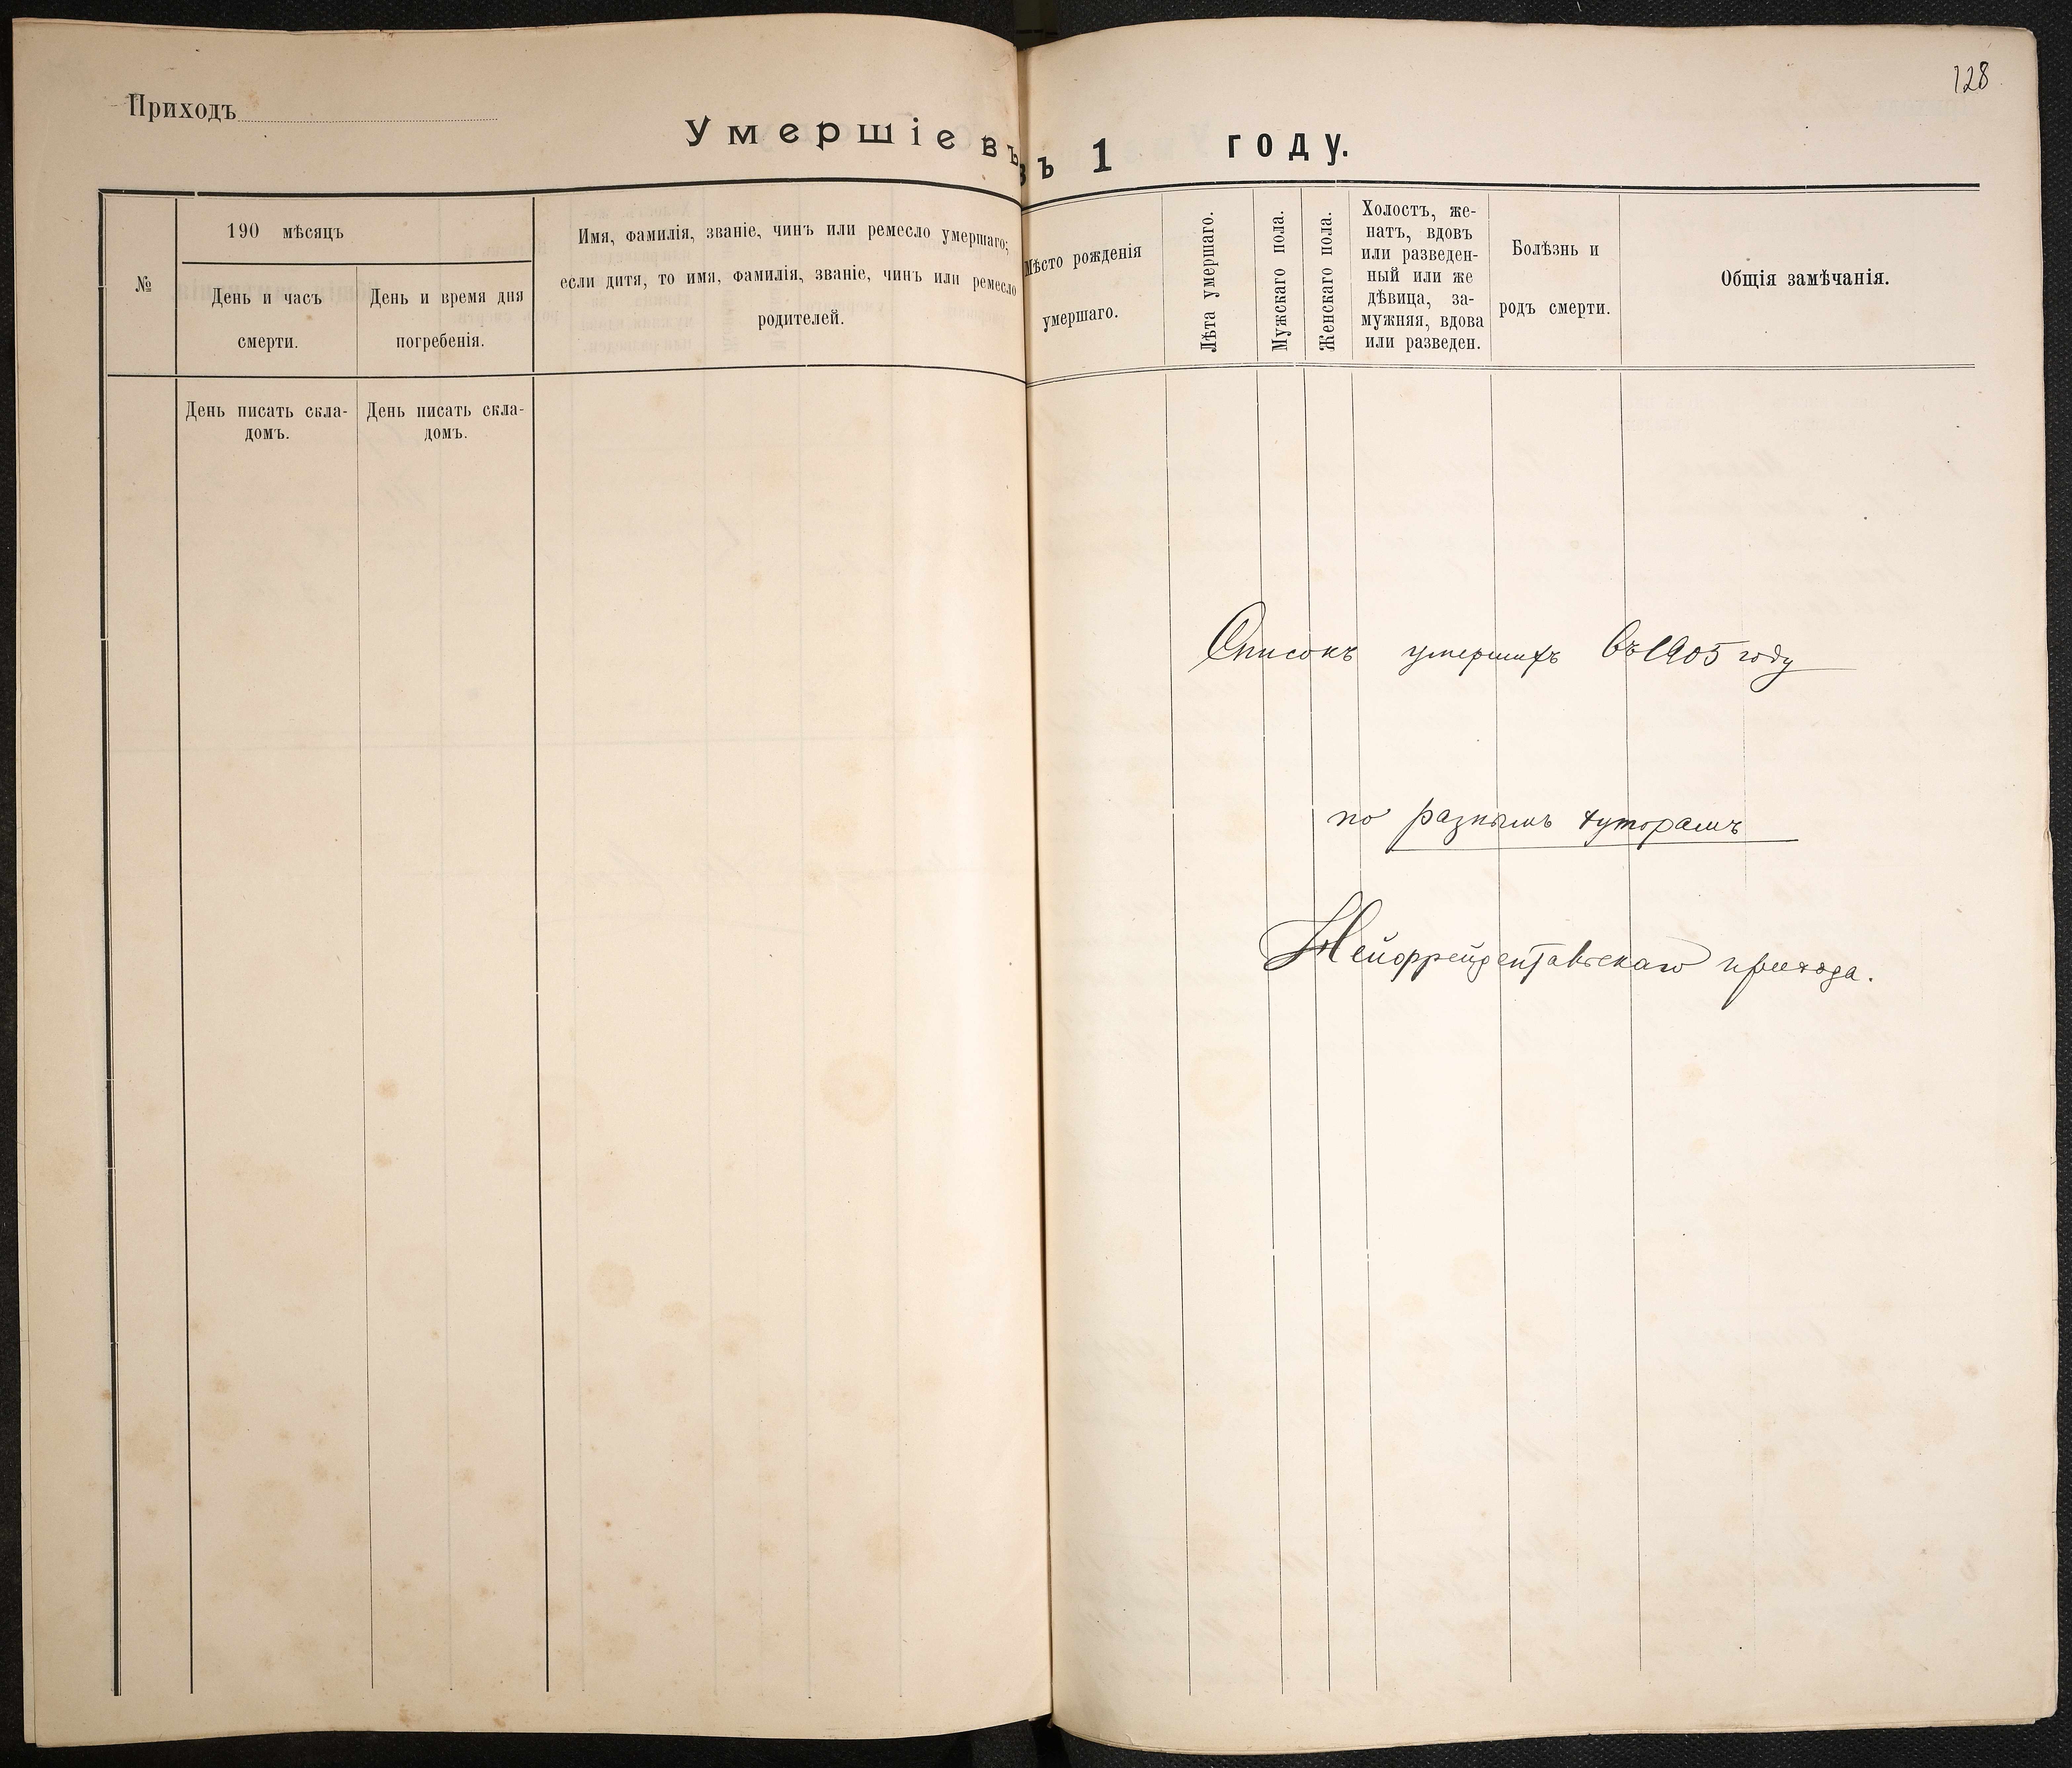 128
Приходъ
Умершіе въ 1 году.
№
190 мѣсяцъ
День и часъ
смерти.
День и время дня
погребенія.
Имя, фамилія, званіе, чинъ или ремесло умершаго;
если дитя, то имя, фамилія, званіе, чинъ или ремесло
родителей.
Мѣсто рожденія
умершаго.
Лѣта умершаго.
Мужскаго пола.
Женскаго пола.
Холостъ, же-
натъ, вдовъ
или разведен-
ный или же
дѣвица, за-
мужняя, вдова
или разведен.
Болѣзнь и
родъ смерти.
Общія замѣчанія.
День писать скла-
домъ.
День писать скла-
домъ.
Списокъ умершихъ въ 1905 году
по разнымъ хуторамъ
прихода.